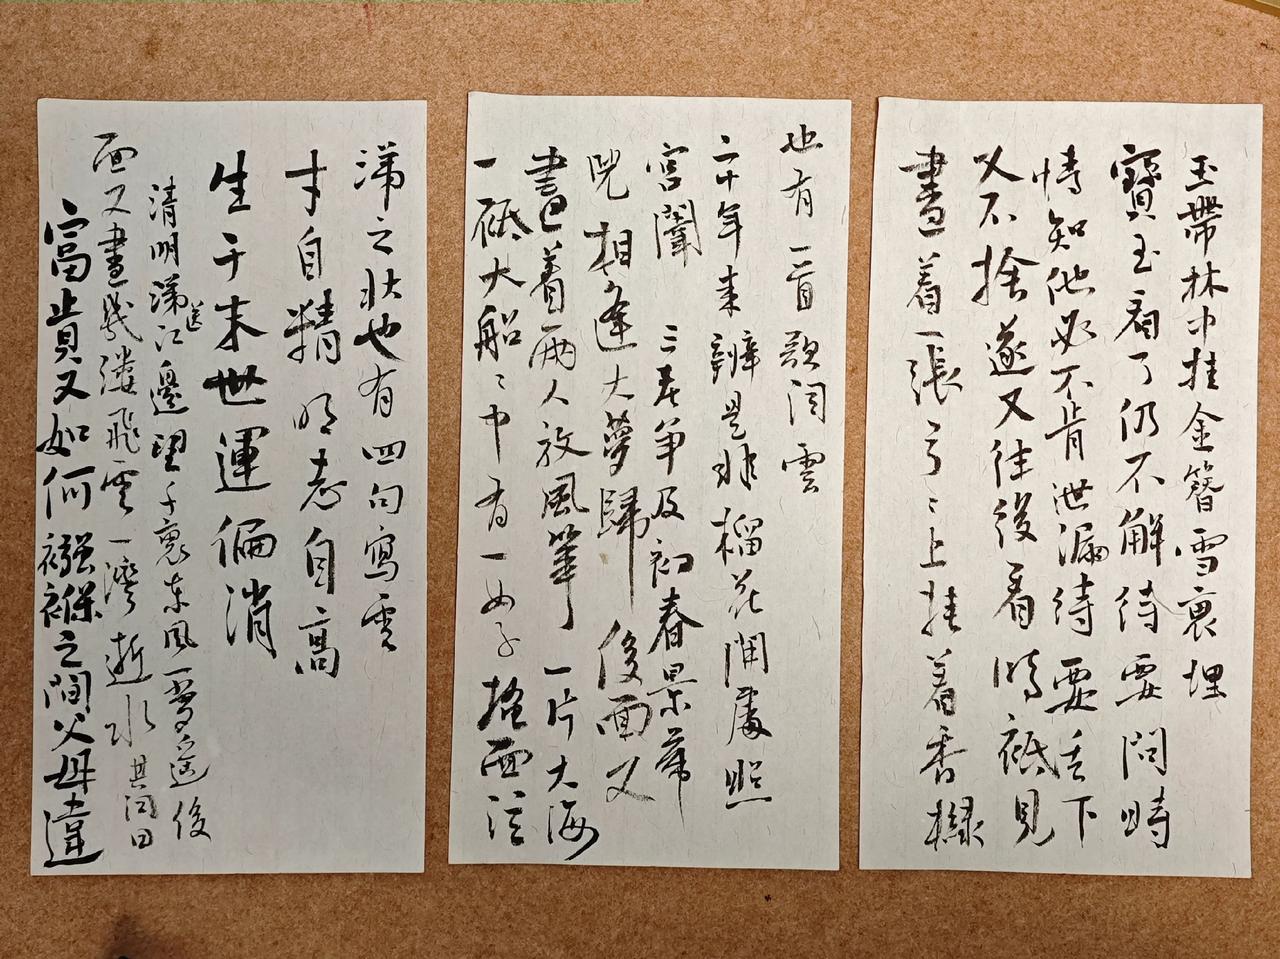 玉帶林中挂金簪雪裏埋
寶玉看了仍不解待要問時
情知他必不肯泄漏待要丟下
又不捨遂又往後看時祇見
畫着一張弓〻上挂着香櫞
也有一首歌詞雲
二十年來辨是非榴花開處照
宮闈三春爭及初春景虎
兕相逢大夢歸後面又
畫着兩人放風箏一片大海
一祇大船〻中有一女子掩面泣
涕之狀也有四句寫雲
才自精明志自高
生于末世運偏消
清明涕送江邊望千裏東風一夢遙後
面又畫幾縷飛雲一灣逝水其詞曰
富貴又如何襁褓之間父母違